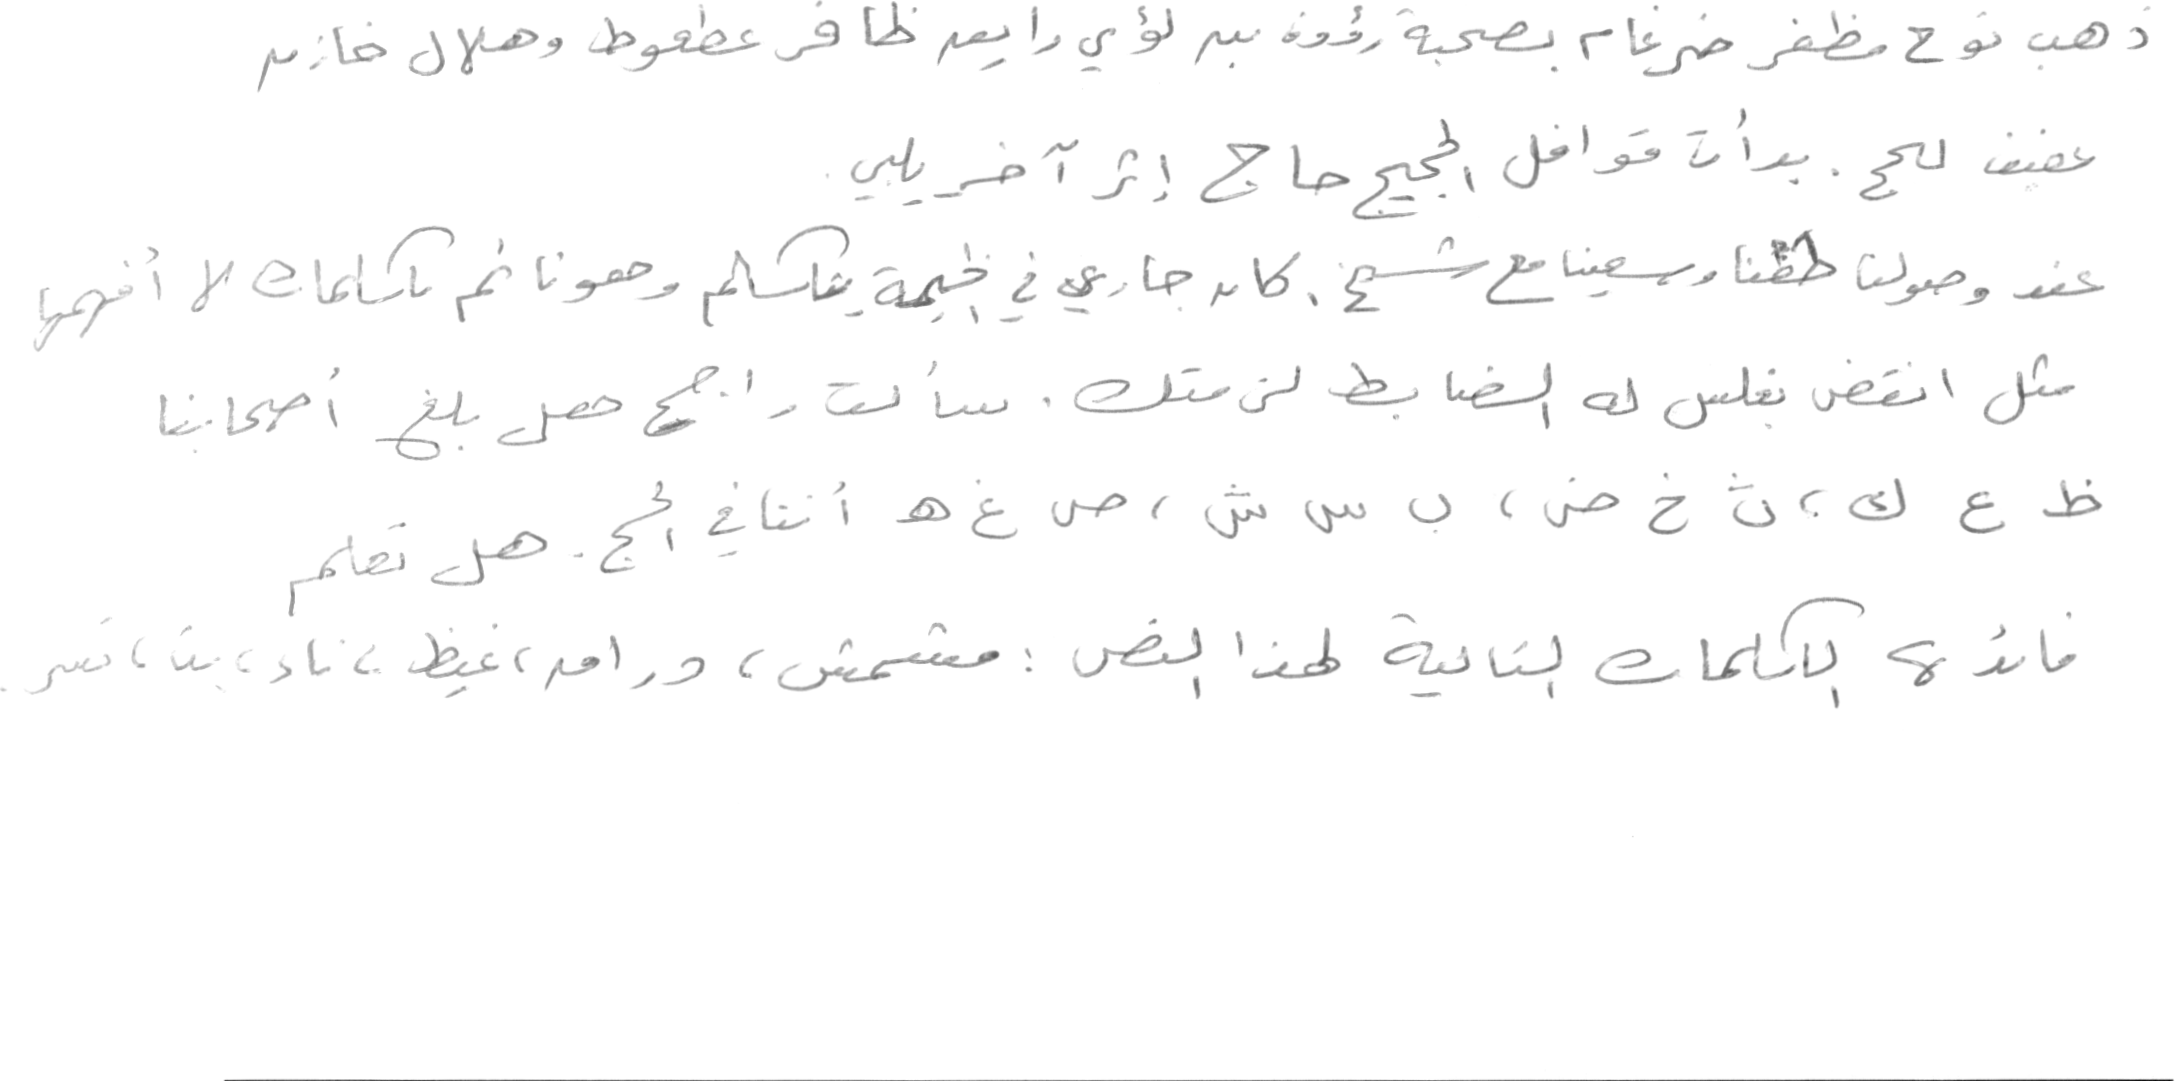 ذهب نوح مظفر ضرغام بصحبة رؤوف بن لؤي رايعن ظافر عطعوط وهلال خازن
عفيف للحج. بدأت قوافل الحجيج حاج إثر آخر يلبي.
عند وصولنا طفنا وسعينا مع شيخ. كان جاري في الخيمة يتكلم وهونائم بكلمات لا أفهمها
مثل انقض بغلس له الضابط لئن متك. سألت راجح هل بلغ أصحابنا
ظ ع ك، ث خ ض، ب س ش، ص غ ه أننا في الحج. هل تعلم
مائدة الكلمات التالية لهذا النص: مشمش، دراهم، غيظ، ناد، بنت، نسر.